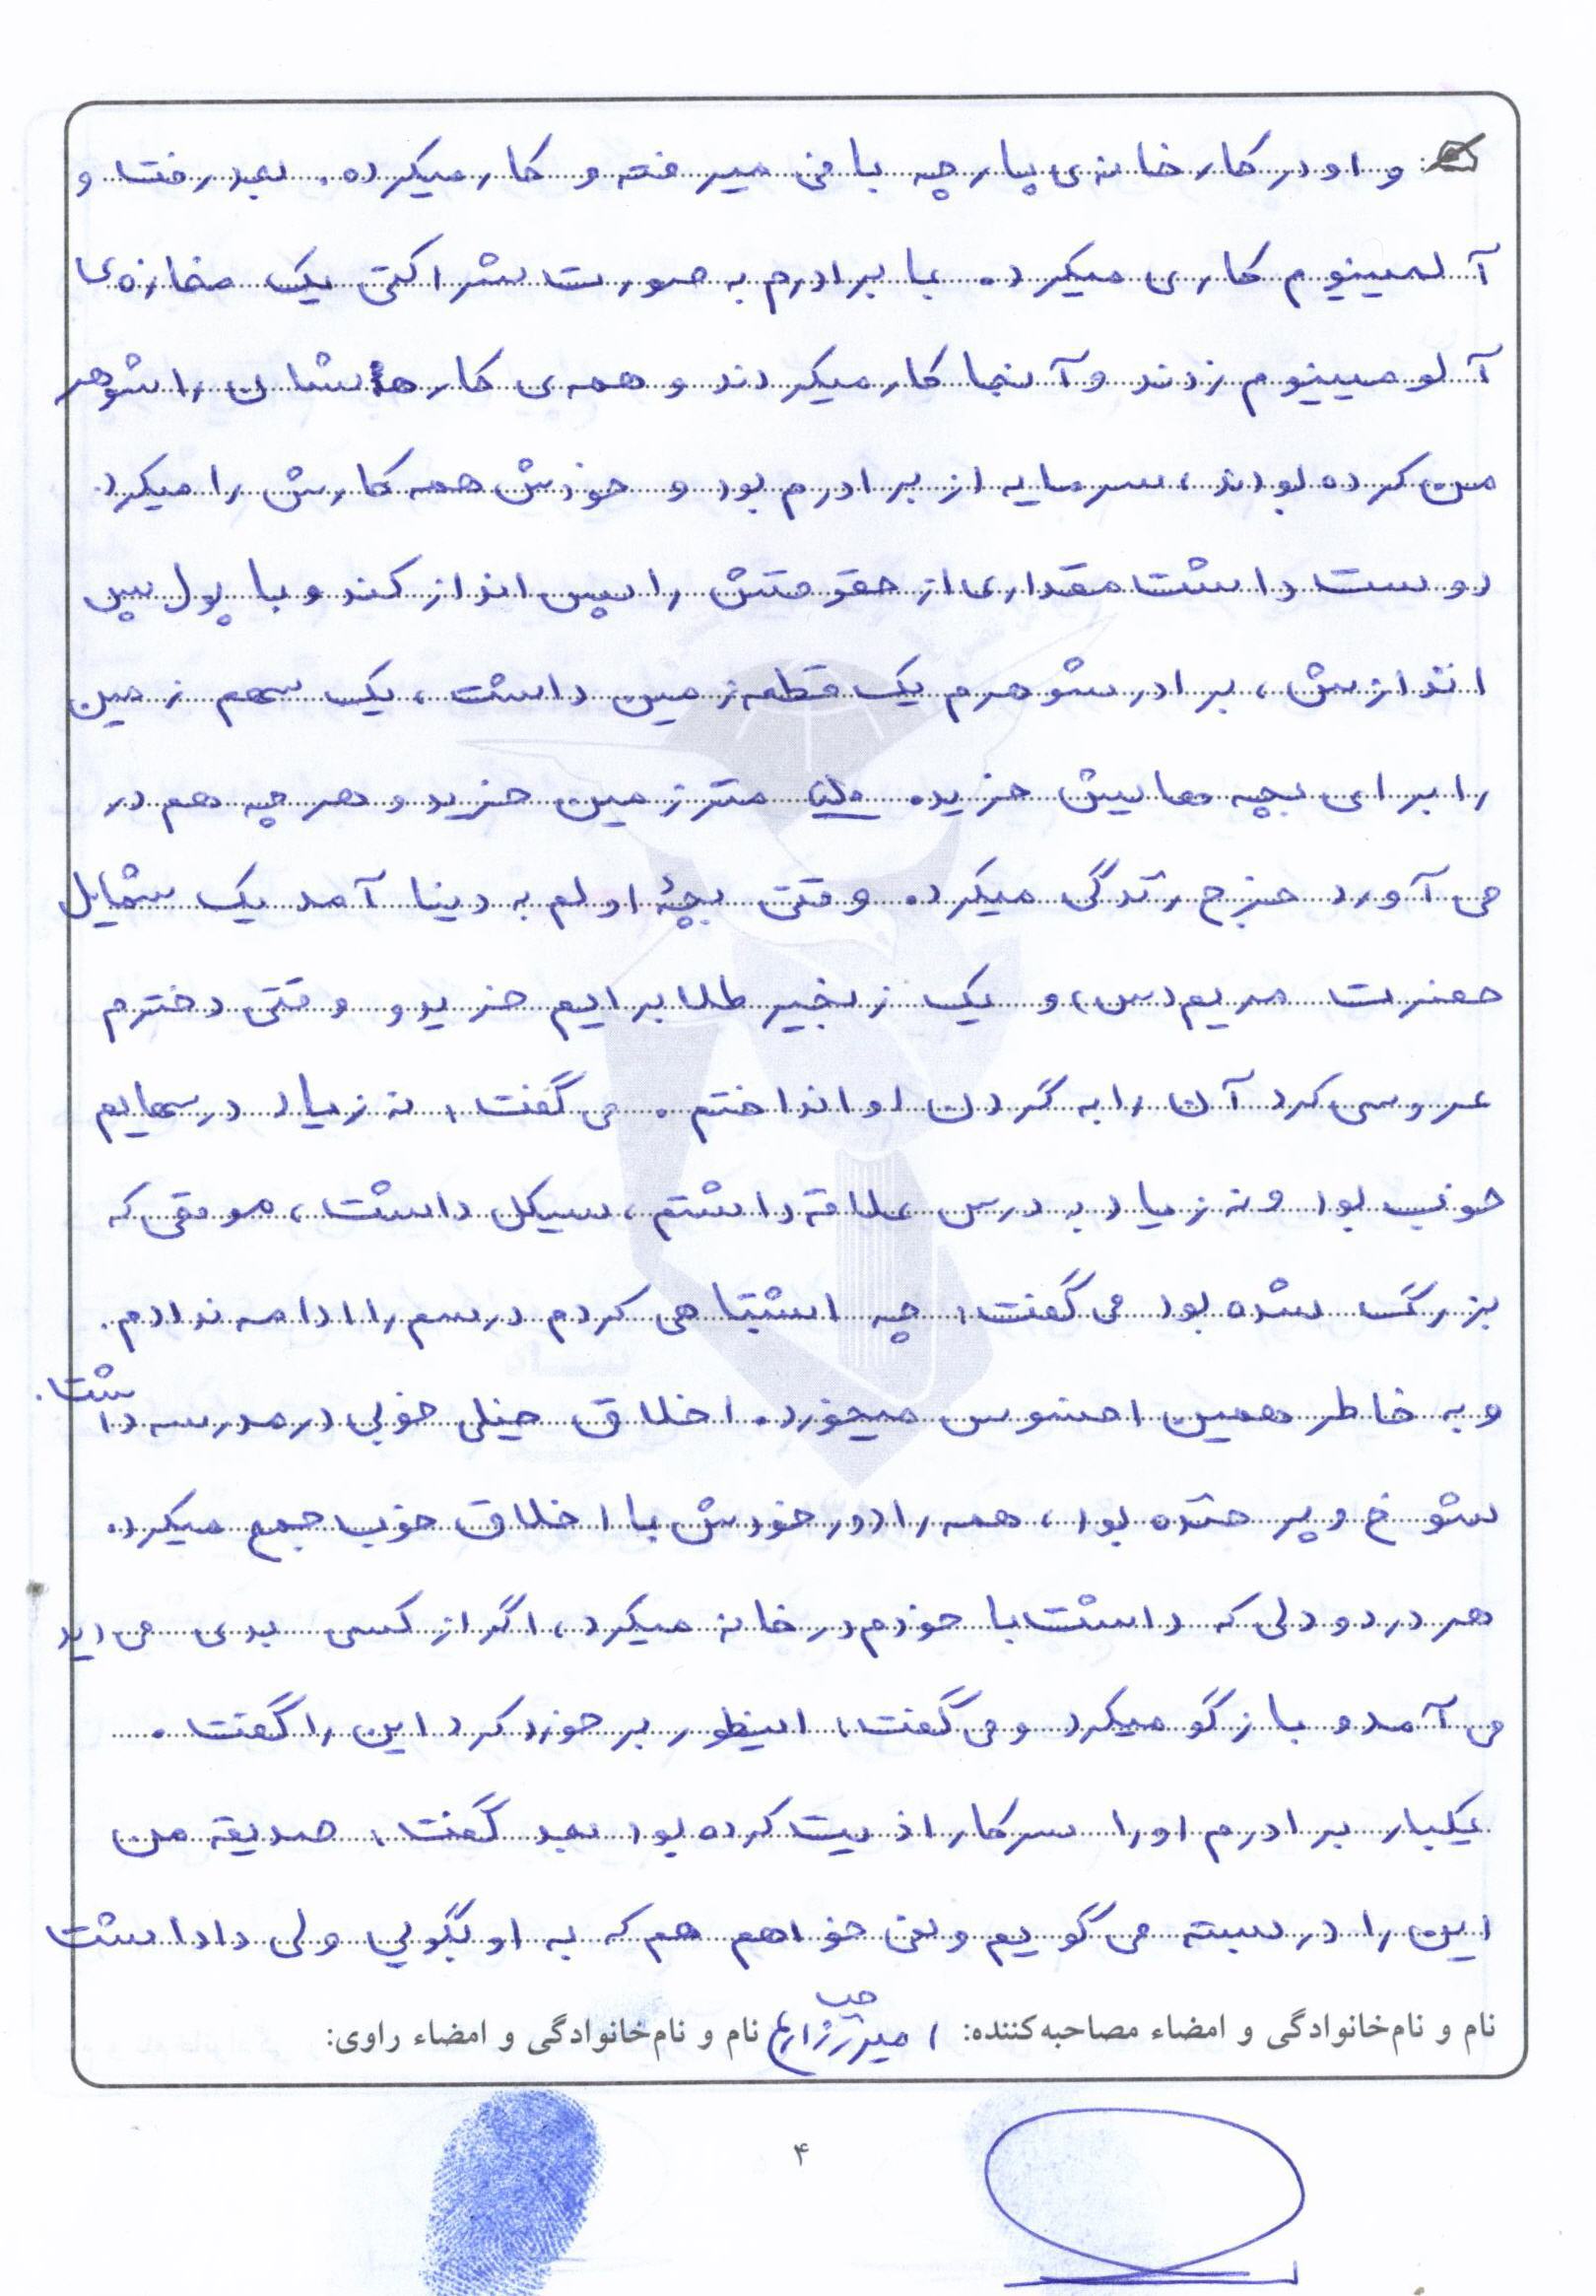 و او در کارخانه‌ی پارچه بافی میرفته و کار میکرده. بعد رفت و
آلمینیوم کاری میکرد. با برادرم به صورت شراکتی یک مغازه‌ی
آلومیینیوم زدند و آنجا کار میکردند و همه‌ی کارهاشان را شوهر
من کرده بودند، سرمایه از برادرم بود و خودش همه کارش را میکرد.
دوست داشت مقداری از حقوقش را پس انداز کند و با پول پس
اندازش، برادر شوهرم یک قطعه زمین داشت، یک سهم زمین
را برای بچه هایش خرید. متر زمین خرید و هر چه هم در
می آورد خرج زندگی میکرد. وقتی بچهٔ اولم به دنیا آمد یک شمایل
حضرت مریم (س) و یک زنجیر طلا برایم خرید و وقتی دخترم
عروسی کرد آن را به گردن او انداختم. می گفت، نه زیاد درسهایم
خوب بود و نه زیاد به درس علاقه داشتم، سیکل داشت، موقعی که
بزرگ شده بود می گفت، چه اشتباهی کردم درسم را ادامه ندادم.
و به خاطر همین افسوس میخورد. اخلاق خیلی خوبی در مدرسه داشت.
شوخ و پر خنده بود، همه را دور خودش با اخلاق خوب جمع میکرد.
هر درد و دلی که داشت با خودم در خانه میکرد، اگر از کسی بدی می دید
می آمد و بازگو میکرد و می گفت، اینطور برخورد کرد این را گفت.
یکبار برادرم او را سر کار اذیت کرده بود بعد گفت، صدیقه من
این را در بسته می گویم و نمی خواهم هم که به او بگویی ولی داداشت
نام و نام‌خانوادگی و امضاء مصاحبه‌کننده: نام و نام‌خانوادگی و امضاء راوی:
۴